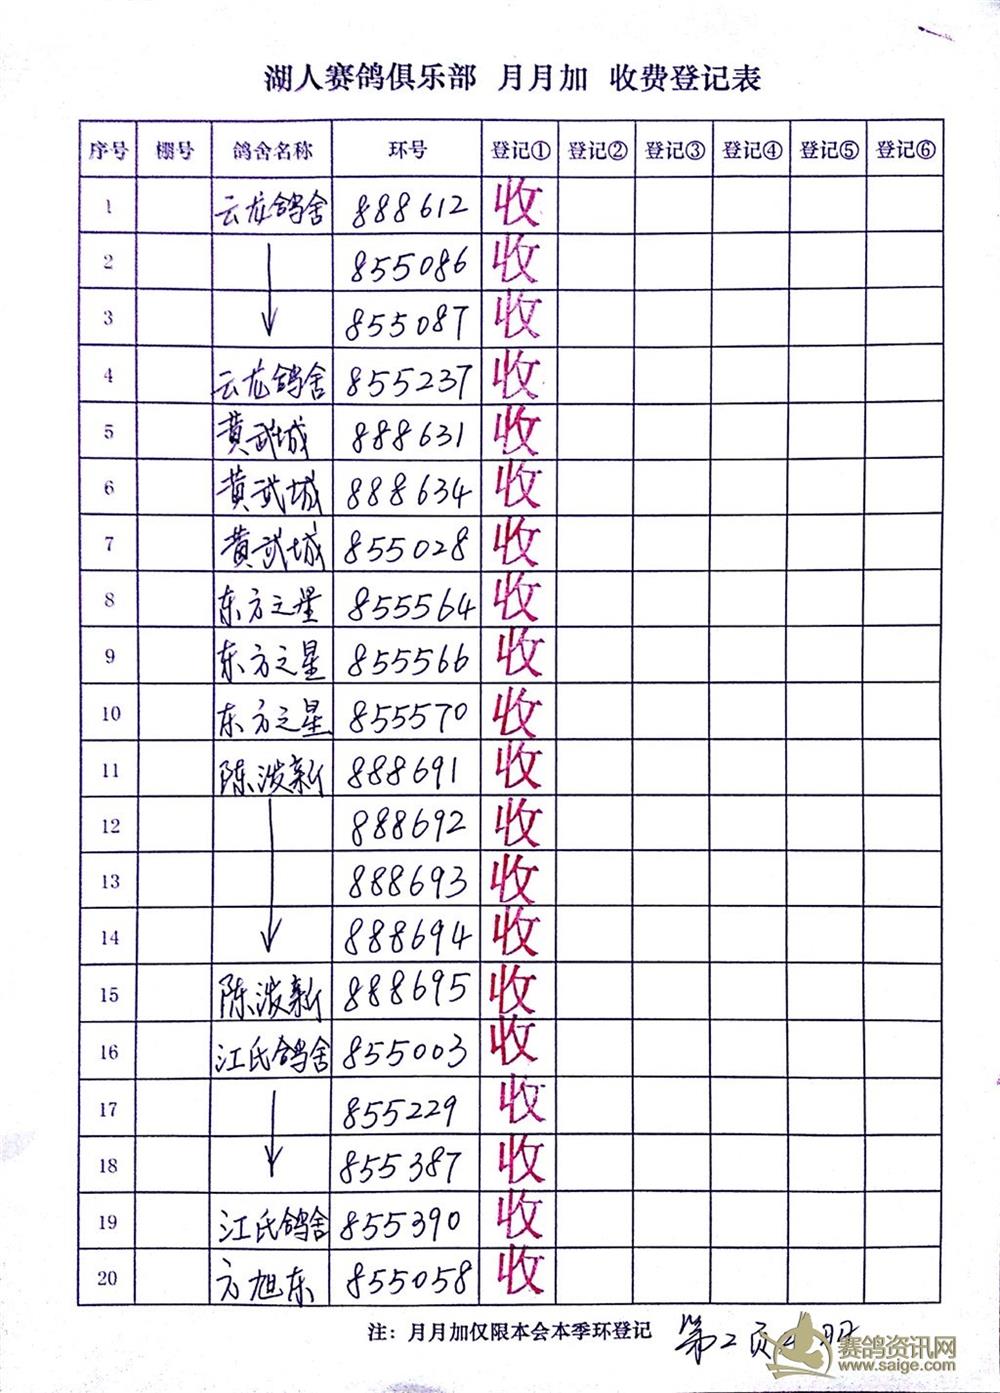 湖人赛鸽俱乐部 月月加 收费登记表
序号 棚号 鸽舍名称 环号 登记① 登记② 登记③ 登记④ 登记⑤ 登记⑥
1 云龙鸽舍 888612 收
2 855086 收
3 855087 收
4 云龙鸽舍 855237 收
5 黄武城 888631 收
6 黄武城 888634 收
7 黄武城 855028 收
8 东方之星 855564 收
9 东方之星 855566 收
10 东方之星 855570 收
11 陈波新 888691 收
12 888692 收
13 888693 收
14 888694 收
15 陈波新 888695 收
16 江氏鸽舍 855003 收
17 855229 收
18 855387 收
19 江氏鸽舍 855390 收
20 方旭东 855058 收
注：月月加仅限本会本季环登记 第2页
赛鸽资讯网
www.saige.com